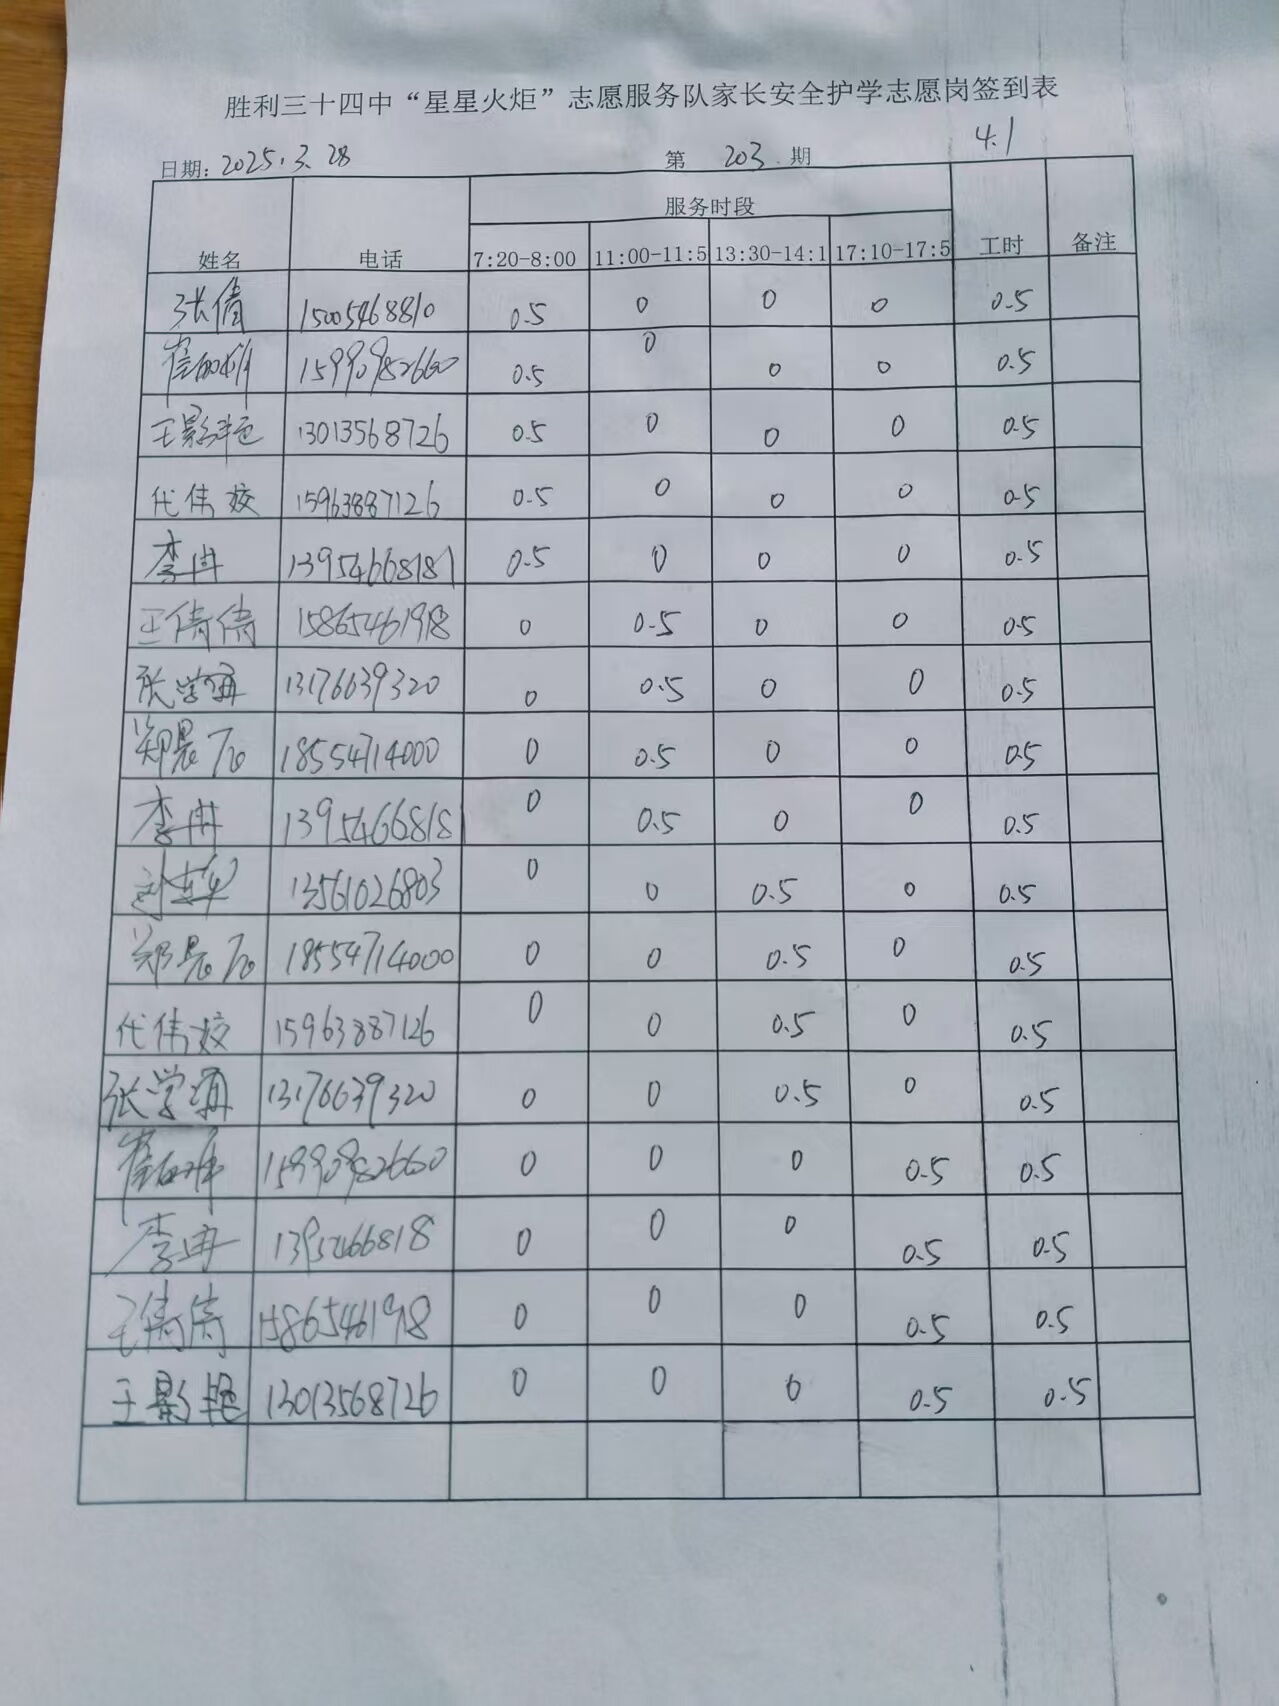 胜利三十四中“星星火炬”志愿服务队家长安全护学志愿岗签到表
日期: 2025.3.28 第 203 期 4.1
服务时段
姓名 电话 7:20-8:00 11:00-11:5 13:30-14:1 17:10-17:5 工时 备注
张倩 15005468810 0.5 0 0 0 0.5
15990982660 0.5 0 0 0 0.5
王影艳 13013568726 0.5 0 0 0 0.5
代伟姣 15963887126 0.5 0 0 0 0.5
李冉 13954668181 0.5 0 0 0 0.5
王倩倩 15865461918 0 0.5 0 0 0.5
张学通 13176639320 0 0.5 0 0 0.5
郑晨 18554714000 0 0.5 0 0 0.5
李冉 13954668181 0 0.5 0 0 0.5
13561026803 0 0 0.5 0 0.5
郑晨 18554714000 0 0 0.5 0 0.5
代伟姣 15963887126 0 0 0.5 0 0.5
张学通 13176639320 0 0 0.5 0 0.5
15990982660 0 0 0 0.5 0.5
李冉 0 0 0 0.5 0.5
王倩倩 15865461918 0 0 0 0.5 0.5
王影艳 13013568726 0 0 0 0.5 0.5